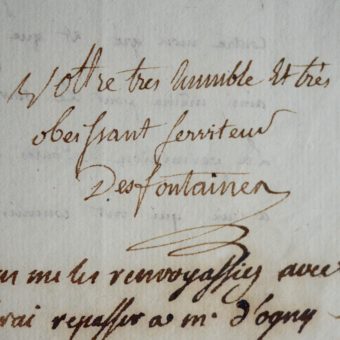 Vottre tres humble Et très
obeissant serviteur
Desfontaines
me les renvoyassiez avec
repasser a mr d'ogny